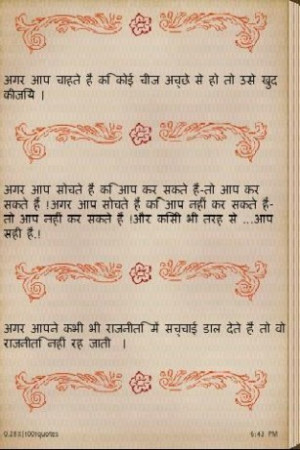 अगर आप चाहते है कि कोई चीज अच्छे से हो तो उसे खुद
कीजिये ।
अगर आप सोचते है कि आप कर सकते है-तो आप कर
सकते है !अगर आप सोचते है कि आप नही कर सकते है-
तो आप नही कर सकते है !और किसी भी तरह से ...आप
सही है.!
अगर आपने कभी भी राजनीति में सच्चाई डाल देते है तो वो
राजनीति नही रह जाती ।
6:43 PM